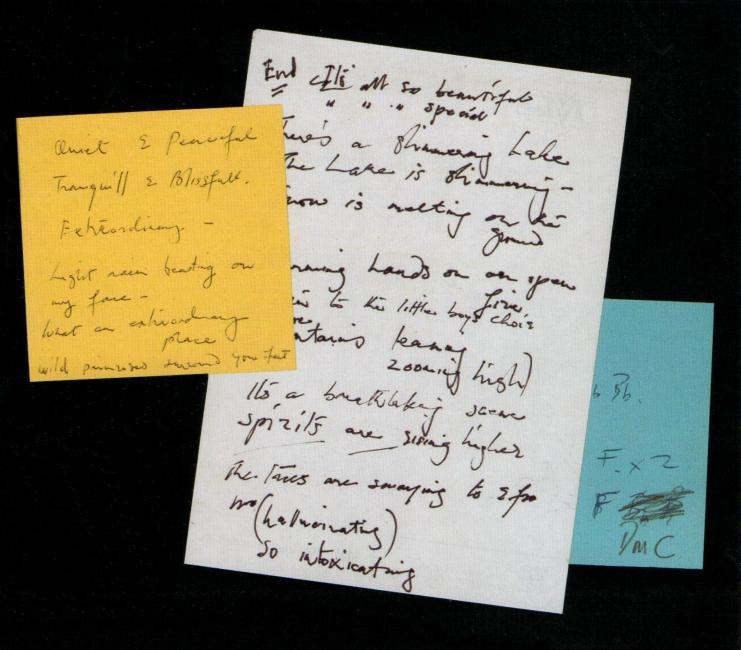 Quiet & Peaceful
Tranquill & Blissfull.
Extraordinary –
Light rain beating on
my face –
What an extraordinary
place
wild surround your feet
End It's all so beautiful
" " " special
There's a shimmering Lake
The Lake is shimmering –
snow is melting on the
ground
hands on an open
fire.
to the little boys choir
leaning
zooming high)
It's a breathtaking scene
spirits are rising higher
The Trees are swaying to & fro
(hallucinating)
So intoxicating
Bb.
F. x 2
F
DmC